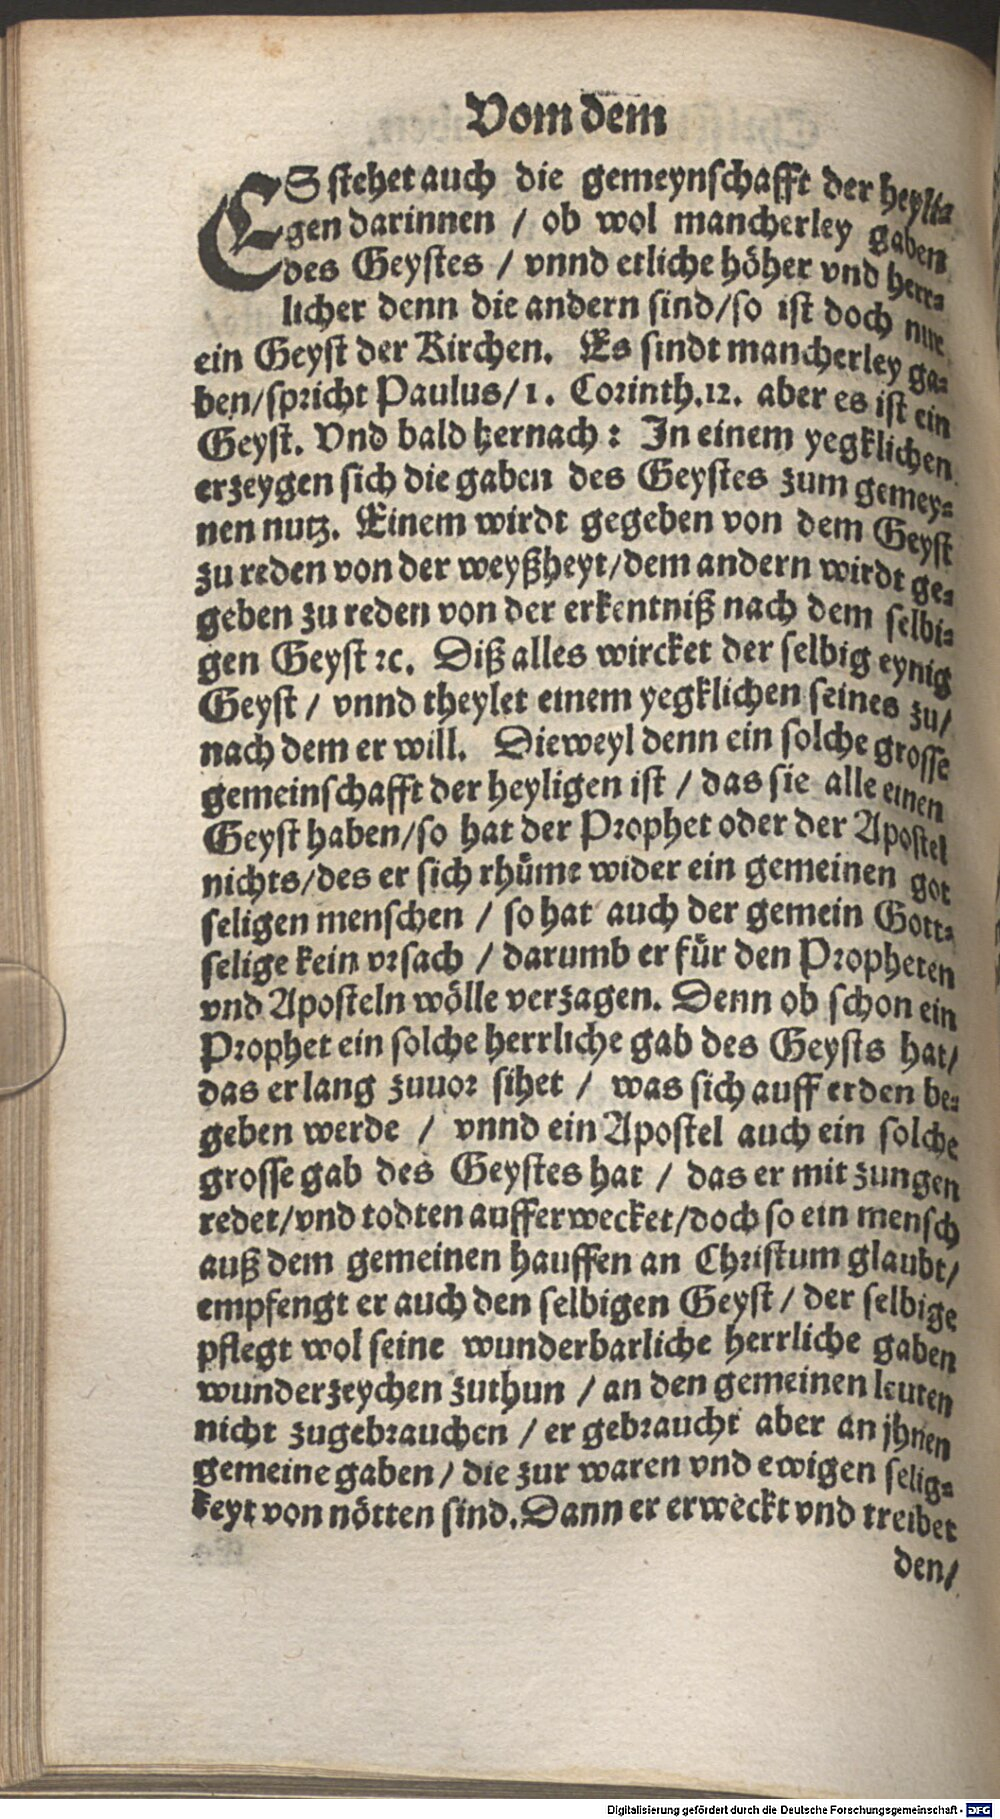 Vom dem
ES stehet auch die gemeynschafft der heyli⸗
gen darinnen / ob wol mancherley gaben
des Geystes / vnnd etliche höher vnd herr⸗
licher denn die andern sind/so ist doch nur
ein Geyst der Kirchen. Es sindt mancherley ga⸗
ben/spricht Paulus/1. Corinth.12. aber es ist ein
Geyst. Vnd bald hernach: In einem yegklichen
erzeygen sich die gaben des Geystes zum gemey⸗
nen nutz. Einem wirdt gegeben von dem Geyst
zu reden von der weyßheyt/dem andern wirdt ge⸗
geben zu reden von der erkentniß nach dem selbi⸗
gen Geyst ꝛc. Diß alles wircket der selbig eynig
Geyst / vnnd theylet einem yegklichen seines zu/
nach dem er will. Dieweyl denn ein solche grosse
gemeinschafft der heyligen ist / das sie alle einen
Geyst haben/so hat der Prophet oder der Apostel
nichts/des er sich rhüme wider ein gemeinen got
seligen menschen / so hat auch der gemein Gott⸗
selige kein vrsach / darumb er für den Propheten
vnd Aposteln wölle verzagen. Denn ob schon ein
Prophet ein solche herrliche gab des Geysts hat/
das er lang zuuor sihet / was sich auff erden be⸗
geben werde / vnnd ein Apostel auch ein solche
grosse gab des Geystes hat / das er mit zungen
redet/vnd todten aufferwecket/doch so ein mensch
auß dem gemeinen hauffen an Christum glaubt/
empfengt er auch den selbigen Geyst / der selbige
pflegt wol seine wunderbarliche herrliche gaben
wunderzeychen zuthun / an den gemeinen leuten
nicht zugebrauchen / er gebraucht aber an jhnen
gemeine gaben / die zur waren vnd ewigen selig⸗
keyt von nötten sind. Dann er erweckt vnd treibet
den/
Digitalisierung gefördert durch die Deutsche Forschungsgemeinschaft - DFG